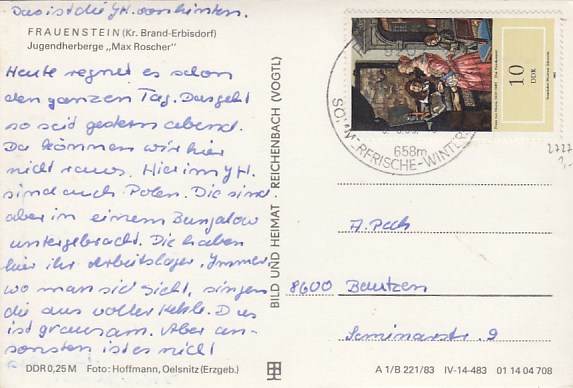 Das ist die JH. von hinten.
FRAUENSTEIN (Kr. Brand-Erbisdorf)
Jugendherberge „Max Roscher"
Heute regnet es schon
den ganzen Tag. Das geht
so seit gestern abend.
Da können wir hier
nicht raus. Hier im JH.
sind auch Polen. Die sind
aber in einem Bungalow
untergebracht. Die haben
hier ihr Arbeitslager. Immer
wo man sie sieht, singen
die aus voller Kehle. Das
ist grausam. Aber an-
sonsten ist es nicht
DDR 0,25 M Foto: Hoffmann, Oelsnitz (Erzgeb.)
BILD UND HEIMAT · REICHENBACH (VOGTL)
10
DDR
658m
RFRISCHE-WINTER
2727
A. Pech
8600 Bautzen
Seminarstr. 9
A 1/B 221/83 IV-14-483 01 14 04 708